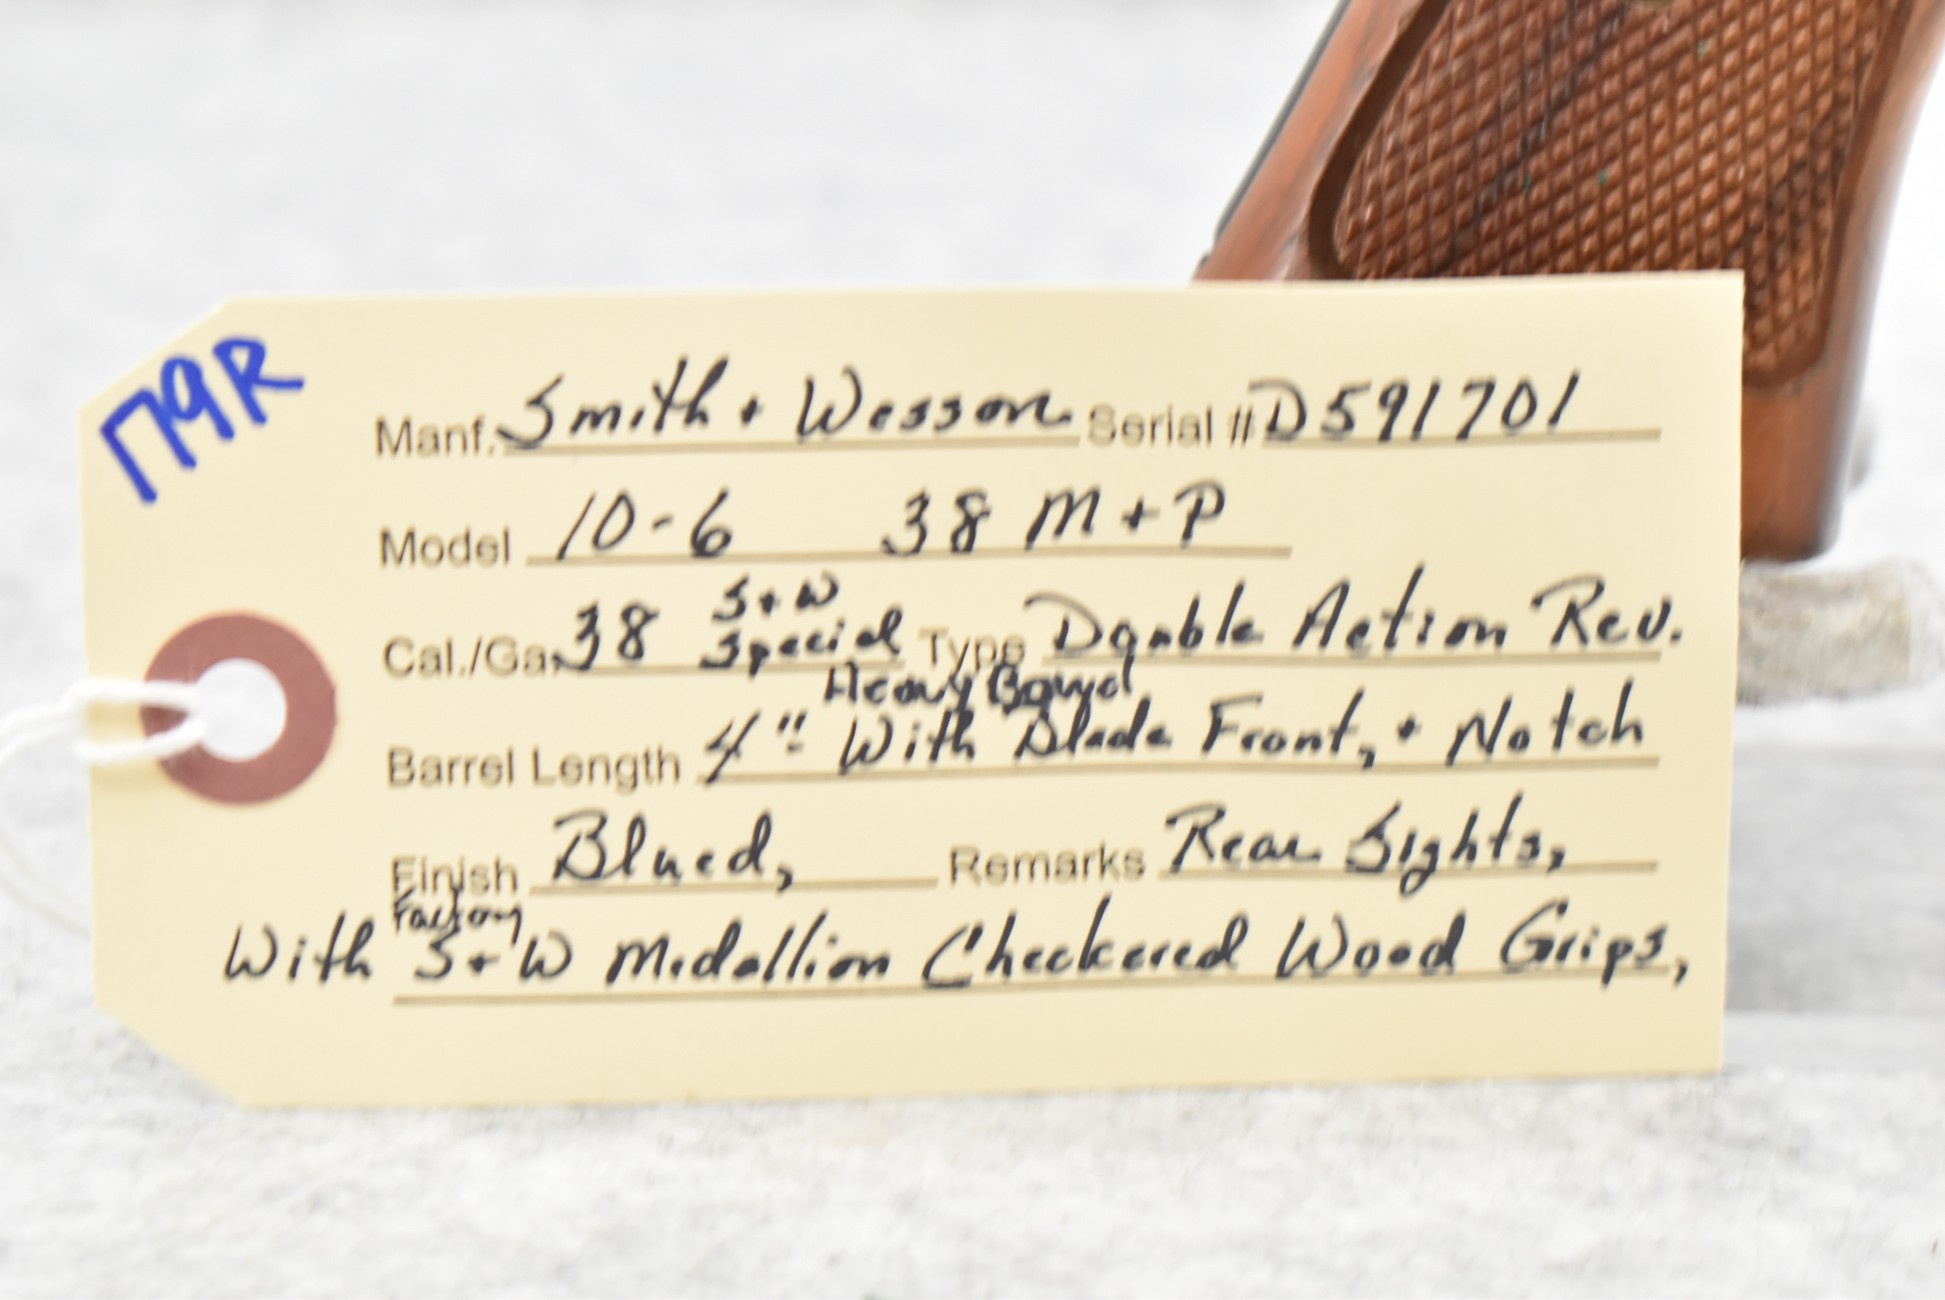 179R
Manf. Smith + Wesson Serial # D591701
Model 10-6 38 M+P
Cal./Ga. 38 S+W Special Type Double Action Rev.
Heavy Barrel
Barrel Length 4" With Blade Front, + Notch
Finish Blued, Remarks Rear Sights,
Factory
With S+W Medallion Checkered Wood Grips,